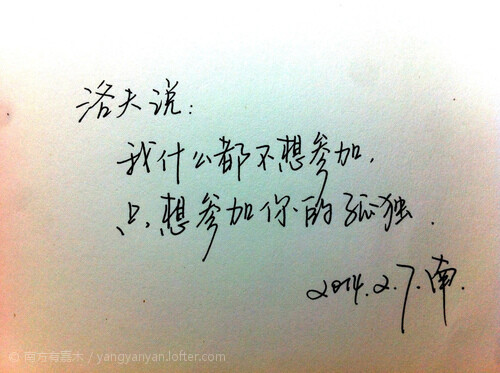 洛夫说：
我什么都不想参加，
只想参加你的孤独.
2014.2.7.南.
© 南方有嘉木 / yangyanyan.lofter.com